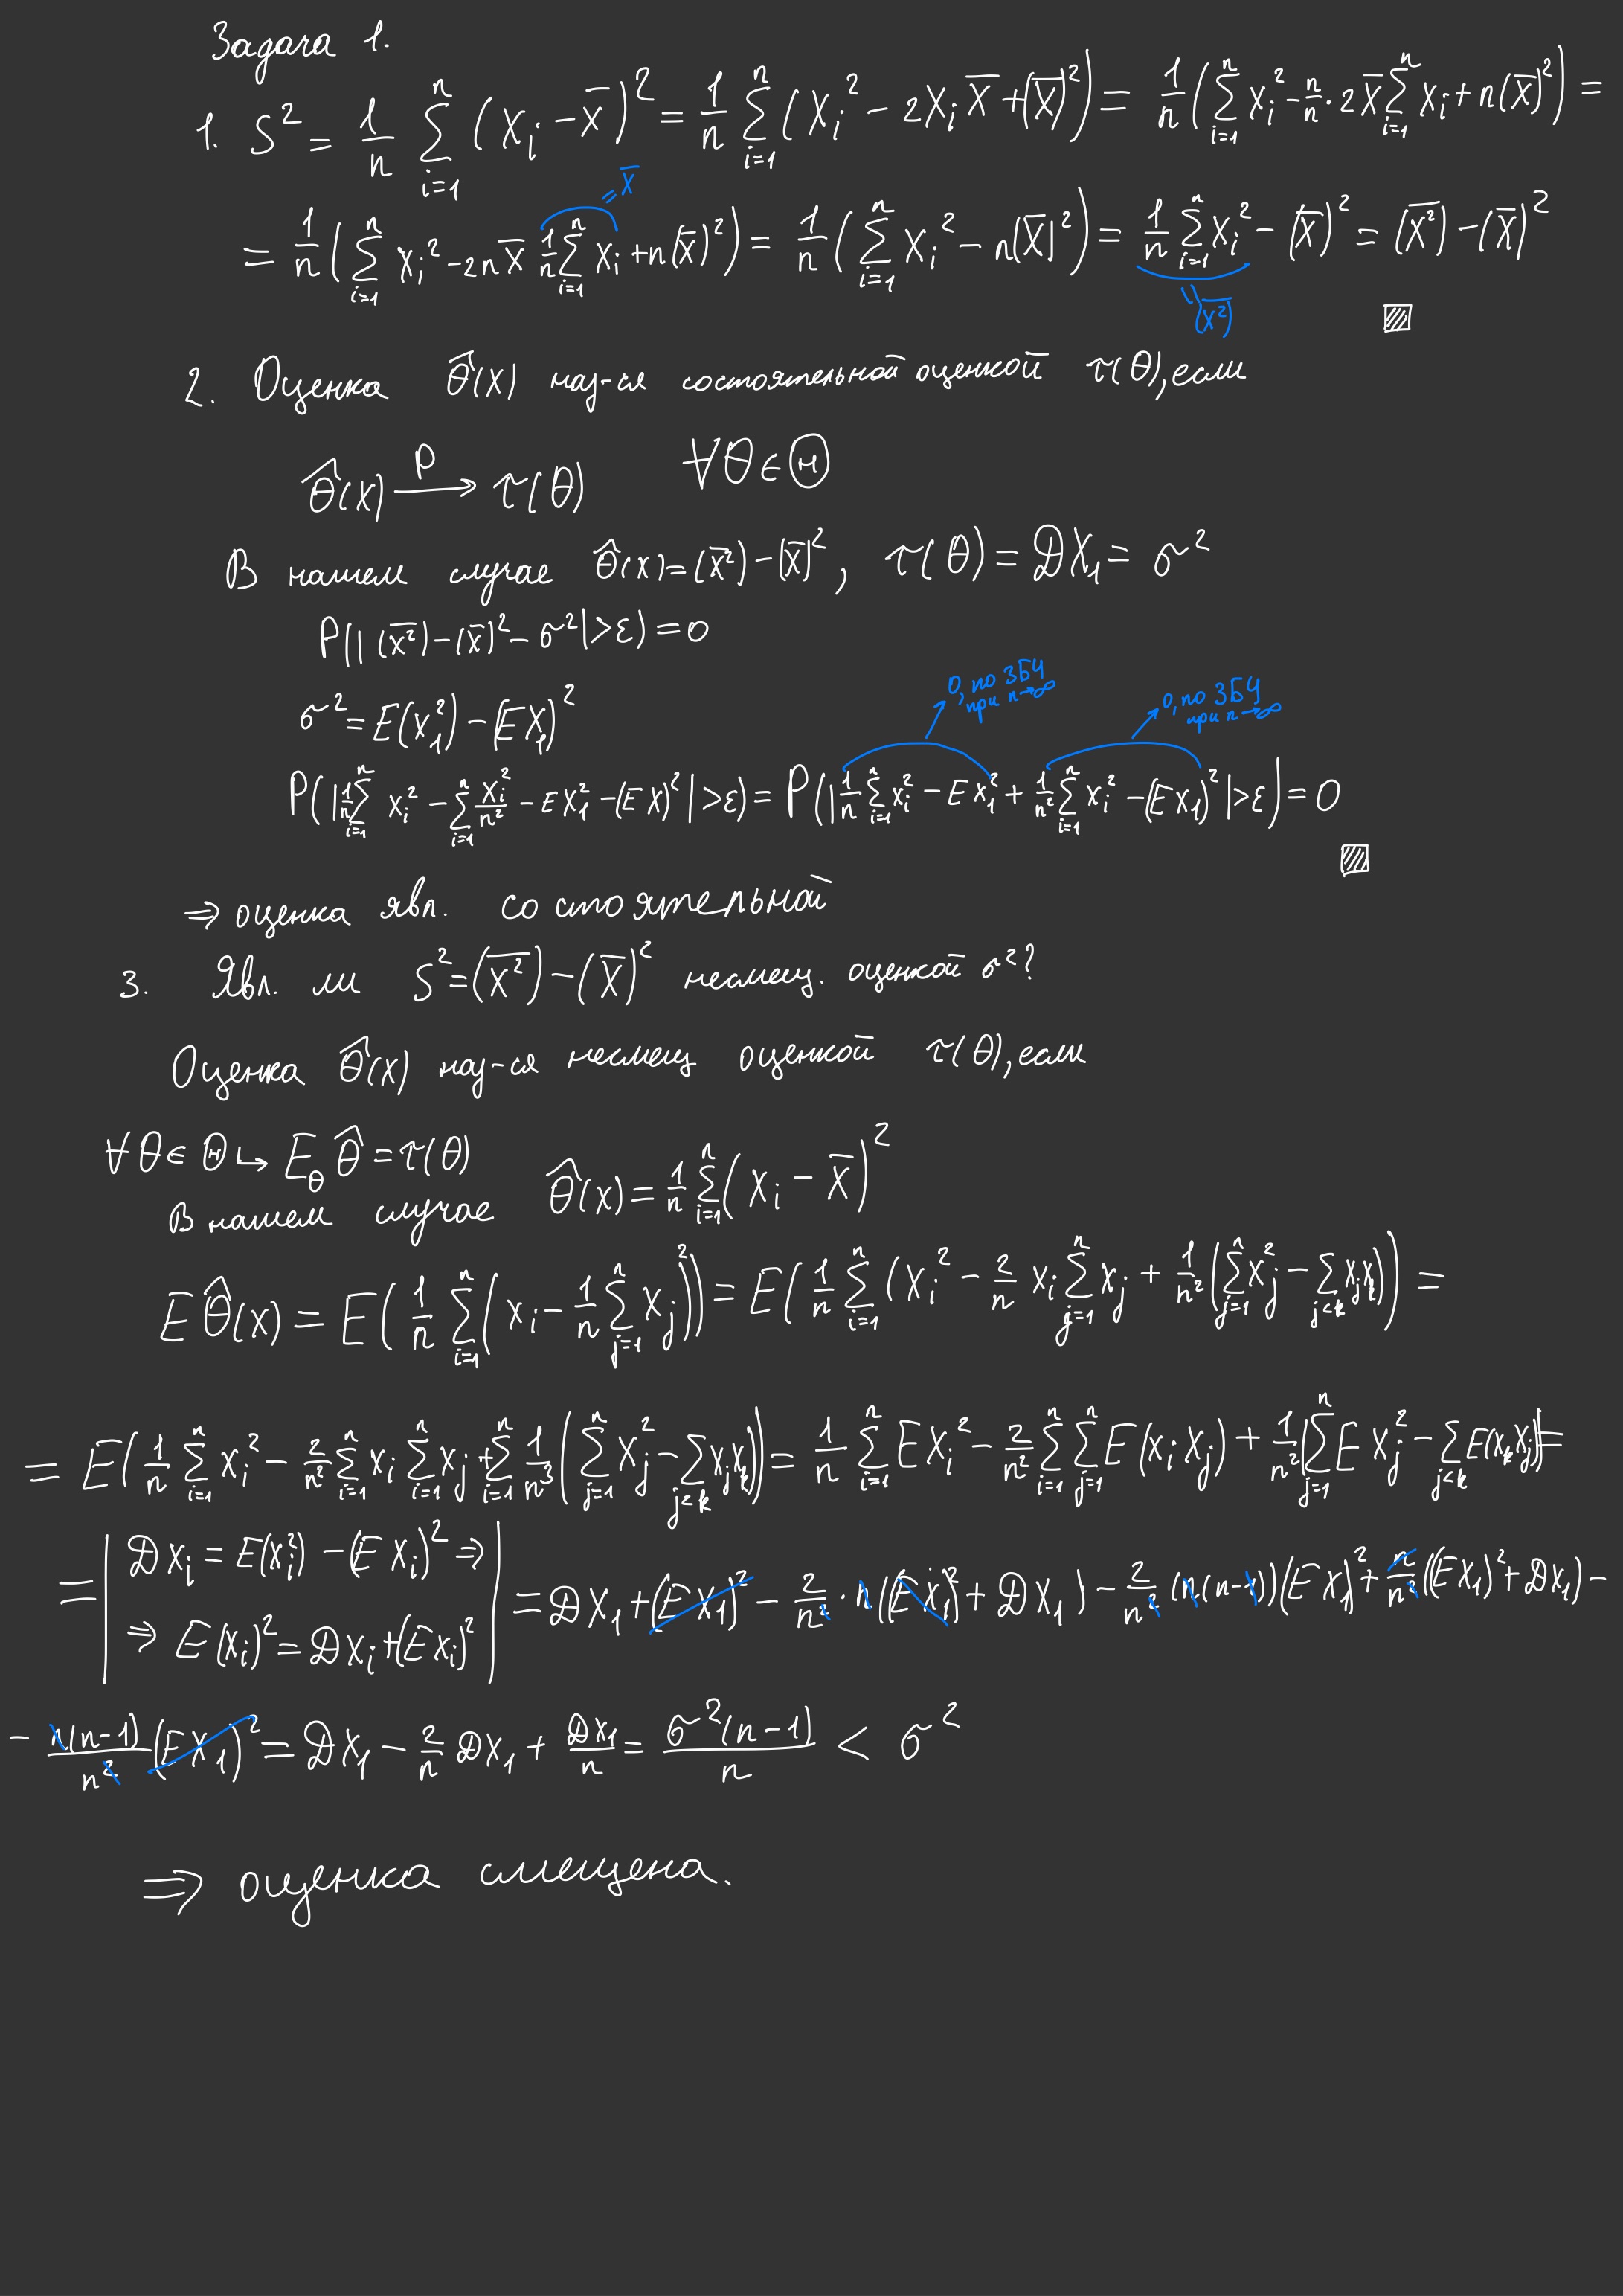 Задача 1.
1. S² = 1/n ∑_{i=1}^{n} (X_i − X̅)² = 1/n ∑_{i=1}^{n} (X_i² − 2X_i X̅ + (X̅)²) = 1/n (∑_{i=1}^{n} X_i² − n/n · 2X̅ ∑_{i=1}^{n} X_i + n(X̅)²) =
= X̅
= 1/n (∑_{i=1}^{n} X_i² − 2n X̅ 1/n ∑_{i=1}^{n} X_i + n(X̅)²) = 1/n (∑_{i=1}^{n} X_i² − n(X̅)²) = 1/n ∑_{i=1}^{n} X_i² − (X̅)² = (\overline{X²}) − (X̅)²
\\ (\overline{X²})
2. Оценка θ̂(X) наз-ся состоятельной оценкой τ(θ), если
θ̂(X) \xrightarrow{P} τ(θ) ∀θ∈Θ
В нашем случае θ̂(X) = (\overline{X²}) − (X̅)², τ(θ) = DX₁ = σ²
P(|(\overline{X²}) − (X̅)² − σ²| > ε) = 0
σ² = E(X₁²) − (EX₁)²
0, по ЗБЧ при n→∞ 0, по ЗБЧ при n→∞
P(|1/n ∑_{i=1}^{n} X_i² − ∑_{i=1}^{n} X_i²/n² − EX₁² − (EX)²| > ε) = P(|1/n ∑_{i=1}^{n} X_i² − EX₁² + 1/n² ∑_{i=1}^{n} X_i² − (EX₁)²| > ε) = 0
⇒ оценка явл. состоятельной
3. Явл. ли S² = (\overline{X²}) − (X̅)² несмещ. оценкой σ²?
Оценка θ̂(X) наз-ся несмещ оценкой τ(θ), если
∀θ∈Θ ↳ E_θ θ̂ = τ(θ)
В нашем случае θ̂(X) = 1/n ∑_{i=1}^{n} (X_i − X̅)²
E θ̂(X) = E(1/n ∑_{i=1}^{n} (X_i − 1/n ∑_{j=1}^{n} X_j)²) = E(1/n ∑_{i=1}^{n} (X_i² − 2/n X_i ∑_{j=1}^{n} X_j + 1/n² (∑_{j=1}^{n} X_j² − ∑_{j<k} X_j X_k))) =
= E(1/n ∑_{i=1}^{n} X_i² − 2/n² ∑_{i=1}^{n} X_i ∑_{i=1}^{n} X_j + ∑_{i=1}^{n} 1/n³ (∑_{j=1}^{n} X_j² − ∑_{j<k} X_j X_k)) = 1/n ∑_{i=1}^{n} EX_i² − 2/n² ∑_{i=1}^{n} ∑_{j=1}^{n} E(X_i X_j) + 1/n² (∑_{j=1}^{n} EX_j² − ∑_{j<k} E(X_k X_j)) =
= | DX_i = E(X_i²) − (EX_i)² ⇒
⇒ E(X_i)² = DX_i + (EX_i)² | = DX₁ + (EX₁)² − 2/n² · n((EX₁)² + DX₁) − 2/n² (n(n−1))(EX₁)² + n/n² ((EX₁)² + DX₁) −
− n(n−1)/n² (EX₁)² = DX₁ − 2/n DX₁ + DX₁/n = σ²(n−1)/n < σ²
⇒ оценка смещена.